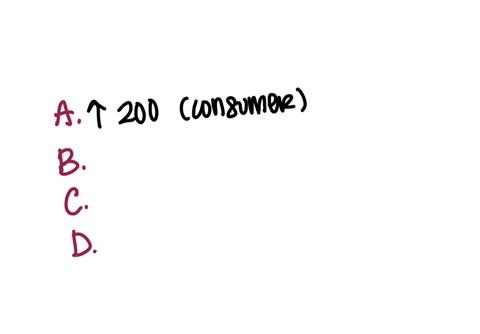 A. ↑ 200 (consumer)
B.
C.
D.